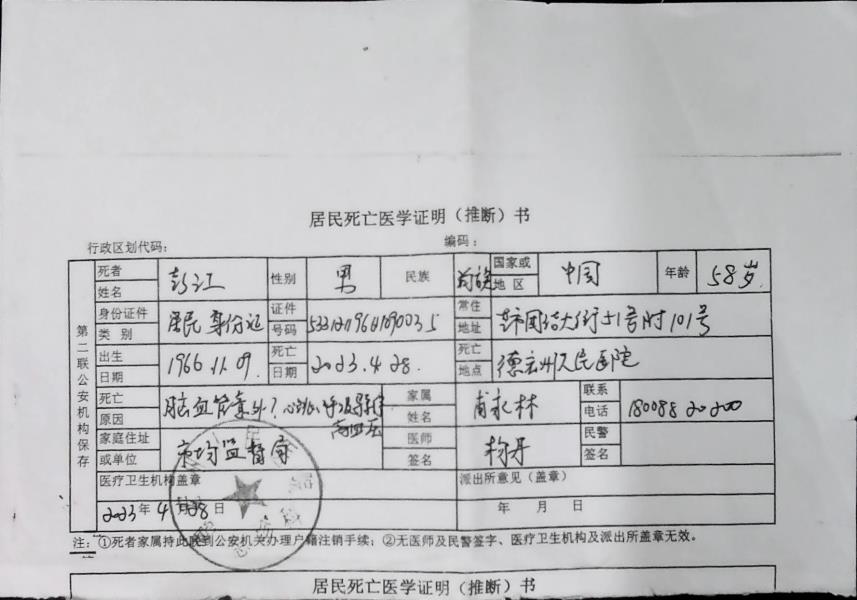 居民死亡医学证明（推断）书
行政区划代码： 编码：
第二联公安机构保存
死者姓名 彭江 性别 男 民族 国家或地区 中国 年龄 58岁
身份证件类别 居民身份证 证件号码 常住地址 芒市团结大街51号附101号
出生日期 1966.11.09. 死亡日期 2023.4.28. 死亡地点 德宏州人民医院
死亡原因 脑血管意外？心跳、呼吸 高血压 家属姓名 联系电话 18008820200
家庭住址或单位 市场监督局 医师签名 杨丹 民警签名
医疗卫生机构盖章 派出所意见（盖章）
2023年4月28日 年 月 日
注：①死者家属持此联到公安机关办理户籍注销手续；②无医师及民警签字、医疗卫生机构及派出所盖章无效。
居民死亡医学证明（推断）书